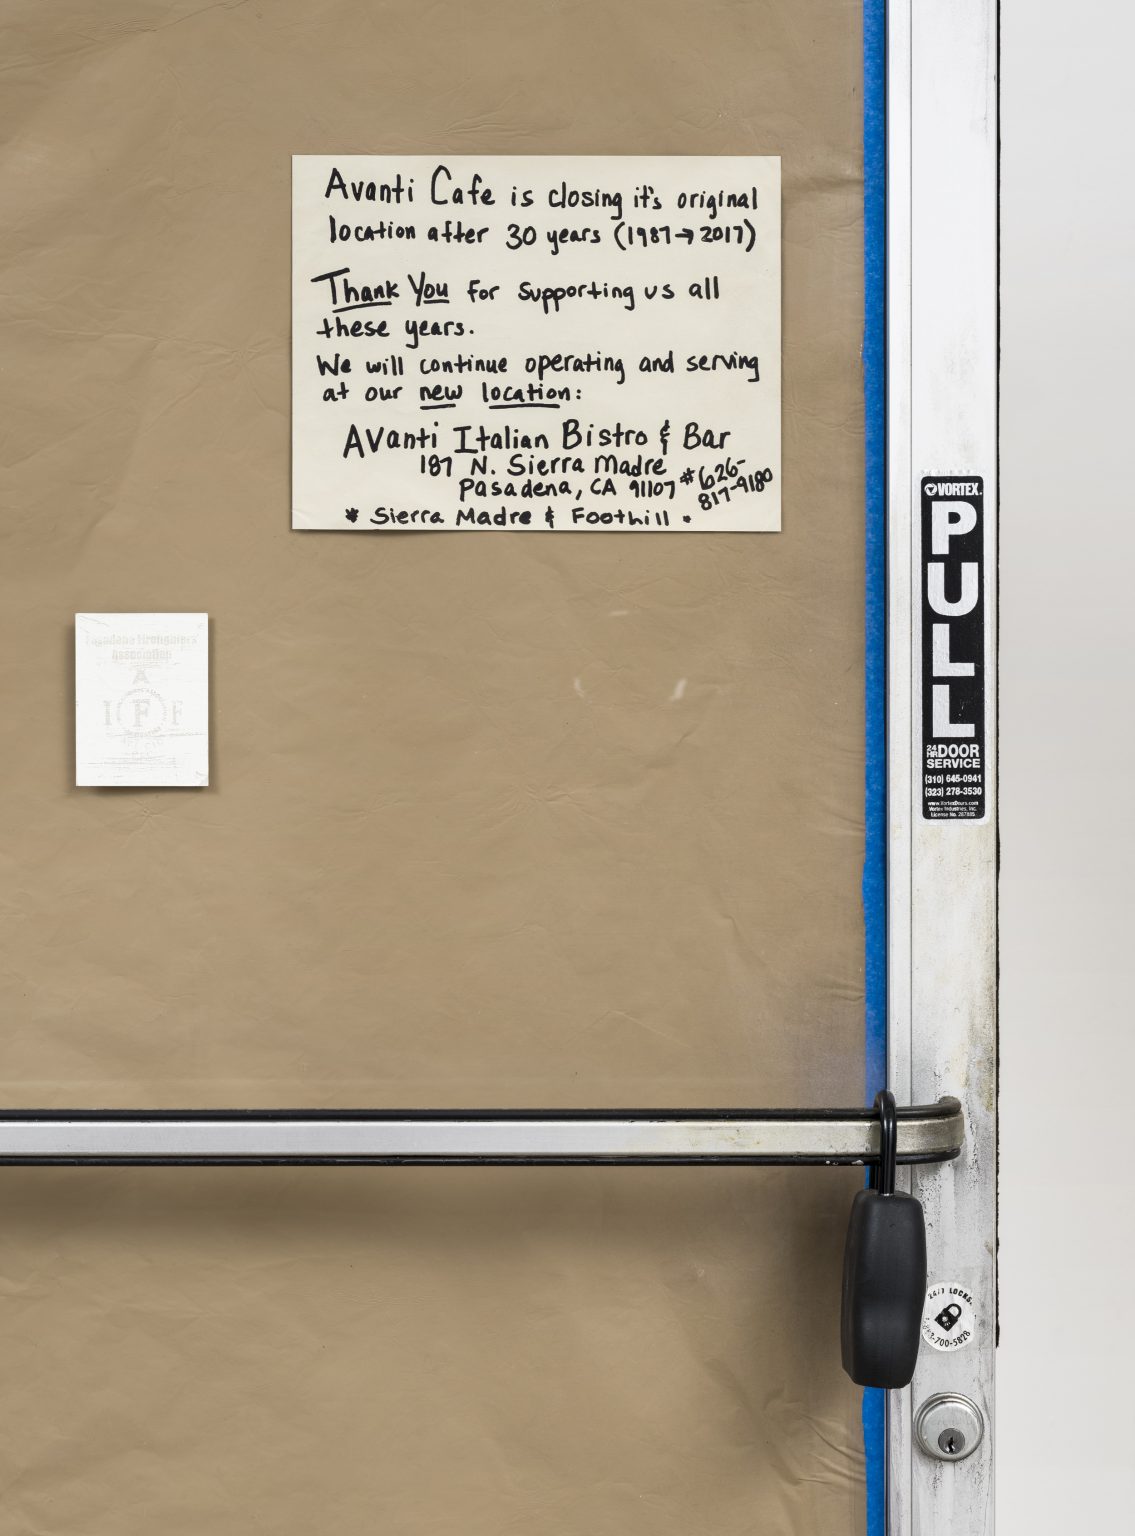 Avanti Cafe is closing it's original
location after 30 years (1987→2017)
Thank You for supporting us all
these years.
We will continue operating and serving
at our new location:
Avanti Italian Bistro & Bar
187 N. Sierra Madre
Pasadena, CA 91107
#626-
817-9180
* Sierra Madre & Foothill *
Pasadena Firefighters'
Association
I F F
VORTEX
PULL
24 HR DOOR
SERVICE
(310) 645-0941
(323) 278-3530
www.VortexDoors.com
Vortex Industries, Inc.
24/7 LOCKS.